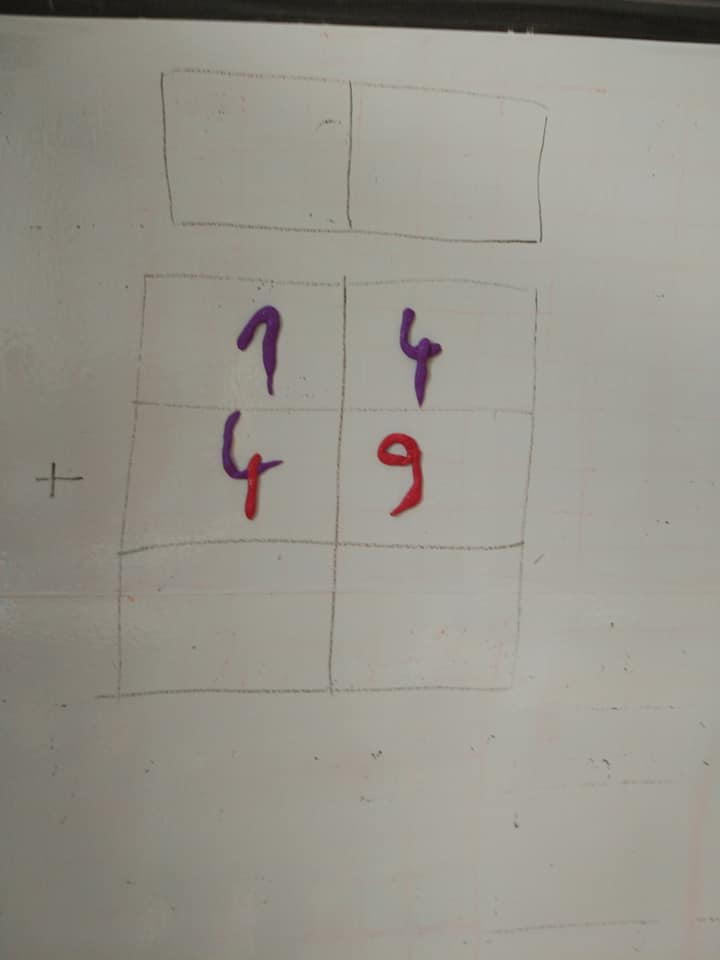 1 4
+ 4 9